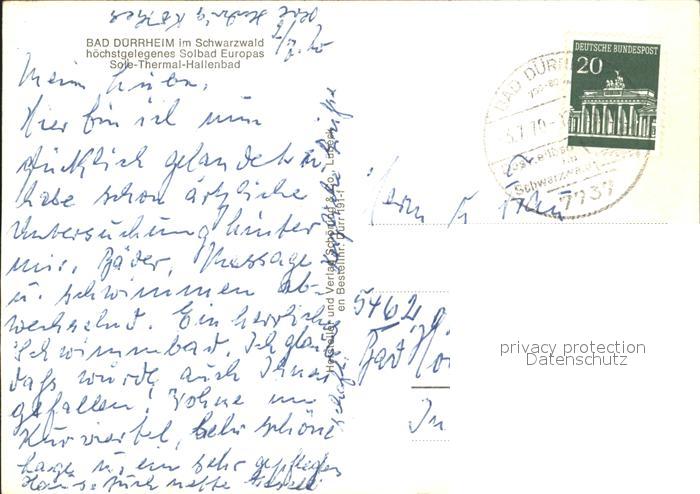 BAD DÜRRHEIM im Schwarzwald
höchstgelegenes Solbad Europas
Sole-Thermal-Hallenbad
Meine Lieben,
Hier bin ich nun
glücklich gelandet u.
habe schon ärztliche
Untersuchung hinter
mir. Bäder, Massage
u. schwimmen ab-
wechselnd. Ein herrliches
Schwimmbad. Ich glaube
dass würde auch Ihnen
gefallen! Wohne im
Kurviertel, sehr schöne
Lage u. ein sehr gepflegtes
Haus. Auch nette
Herzliche Grüße
Hersteller und Verlag Schöning & Co., Lübeck
en Bestellnr. Dürr 191-1
DEUTSCHE BUNDESPOST
20
BAD DÜRRH
.7.70-1
Schwarzwald
7737
Herrn
5462
Bad Hö
In
privacy protection
Datenschutz